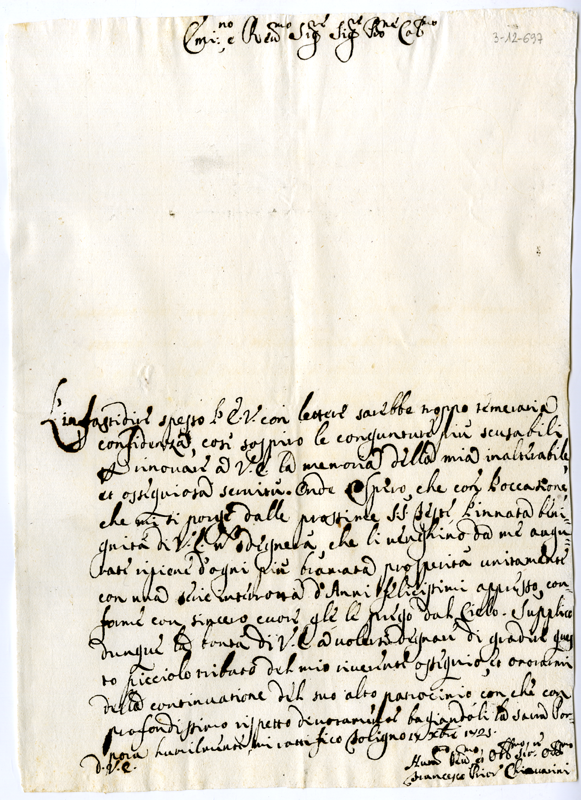 Emi:no e Reumo Sigre Sigre Pne Colmo
3-12-697
L'infastidire spesso l'E.V. con lettere sarebbe troppo temeraria
confidenza, così sospiro le congunture più scusabili
rinovare a V.E. la memoria della mia inalterabile
et ossequiosa servitù. Onde spero, che con l'occasione,
che mi si porge dalle prossime SS. Feste l'innata beni=
gnità di V.E. degnerà, che li venghino da me augu=
rate ripiene d'ogni più bramata prosperità unitamente
con una serie d'Anni felicissimi appresso, con=
forme con sincero cuore gle le prego dal Cielo. Supplico
dunque la bontà di V.E. a volersi degnare di gradire ques=
to picciolo tributo del mio riverente ossequio, et onorarmi
della continuazione del suo alto patrocinio con che con
profondissimo rispetto baciandoli la Sacra Por=
pora humilmente mi ratifico Foligno Xbre 1725.
D.V.E.
Francesco Prior